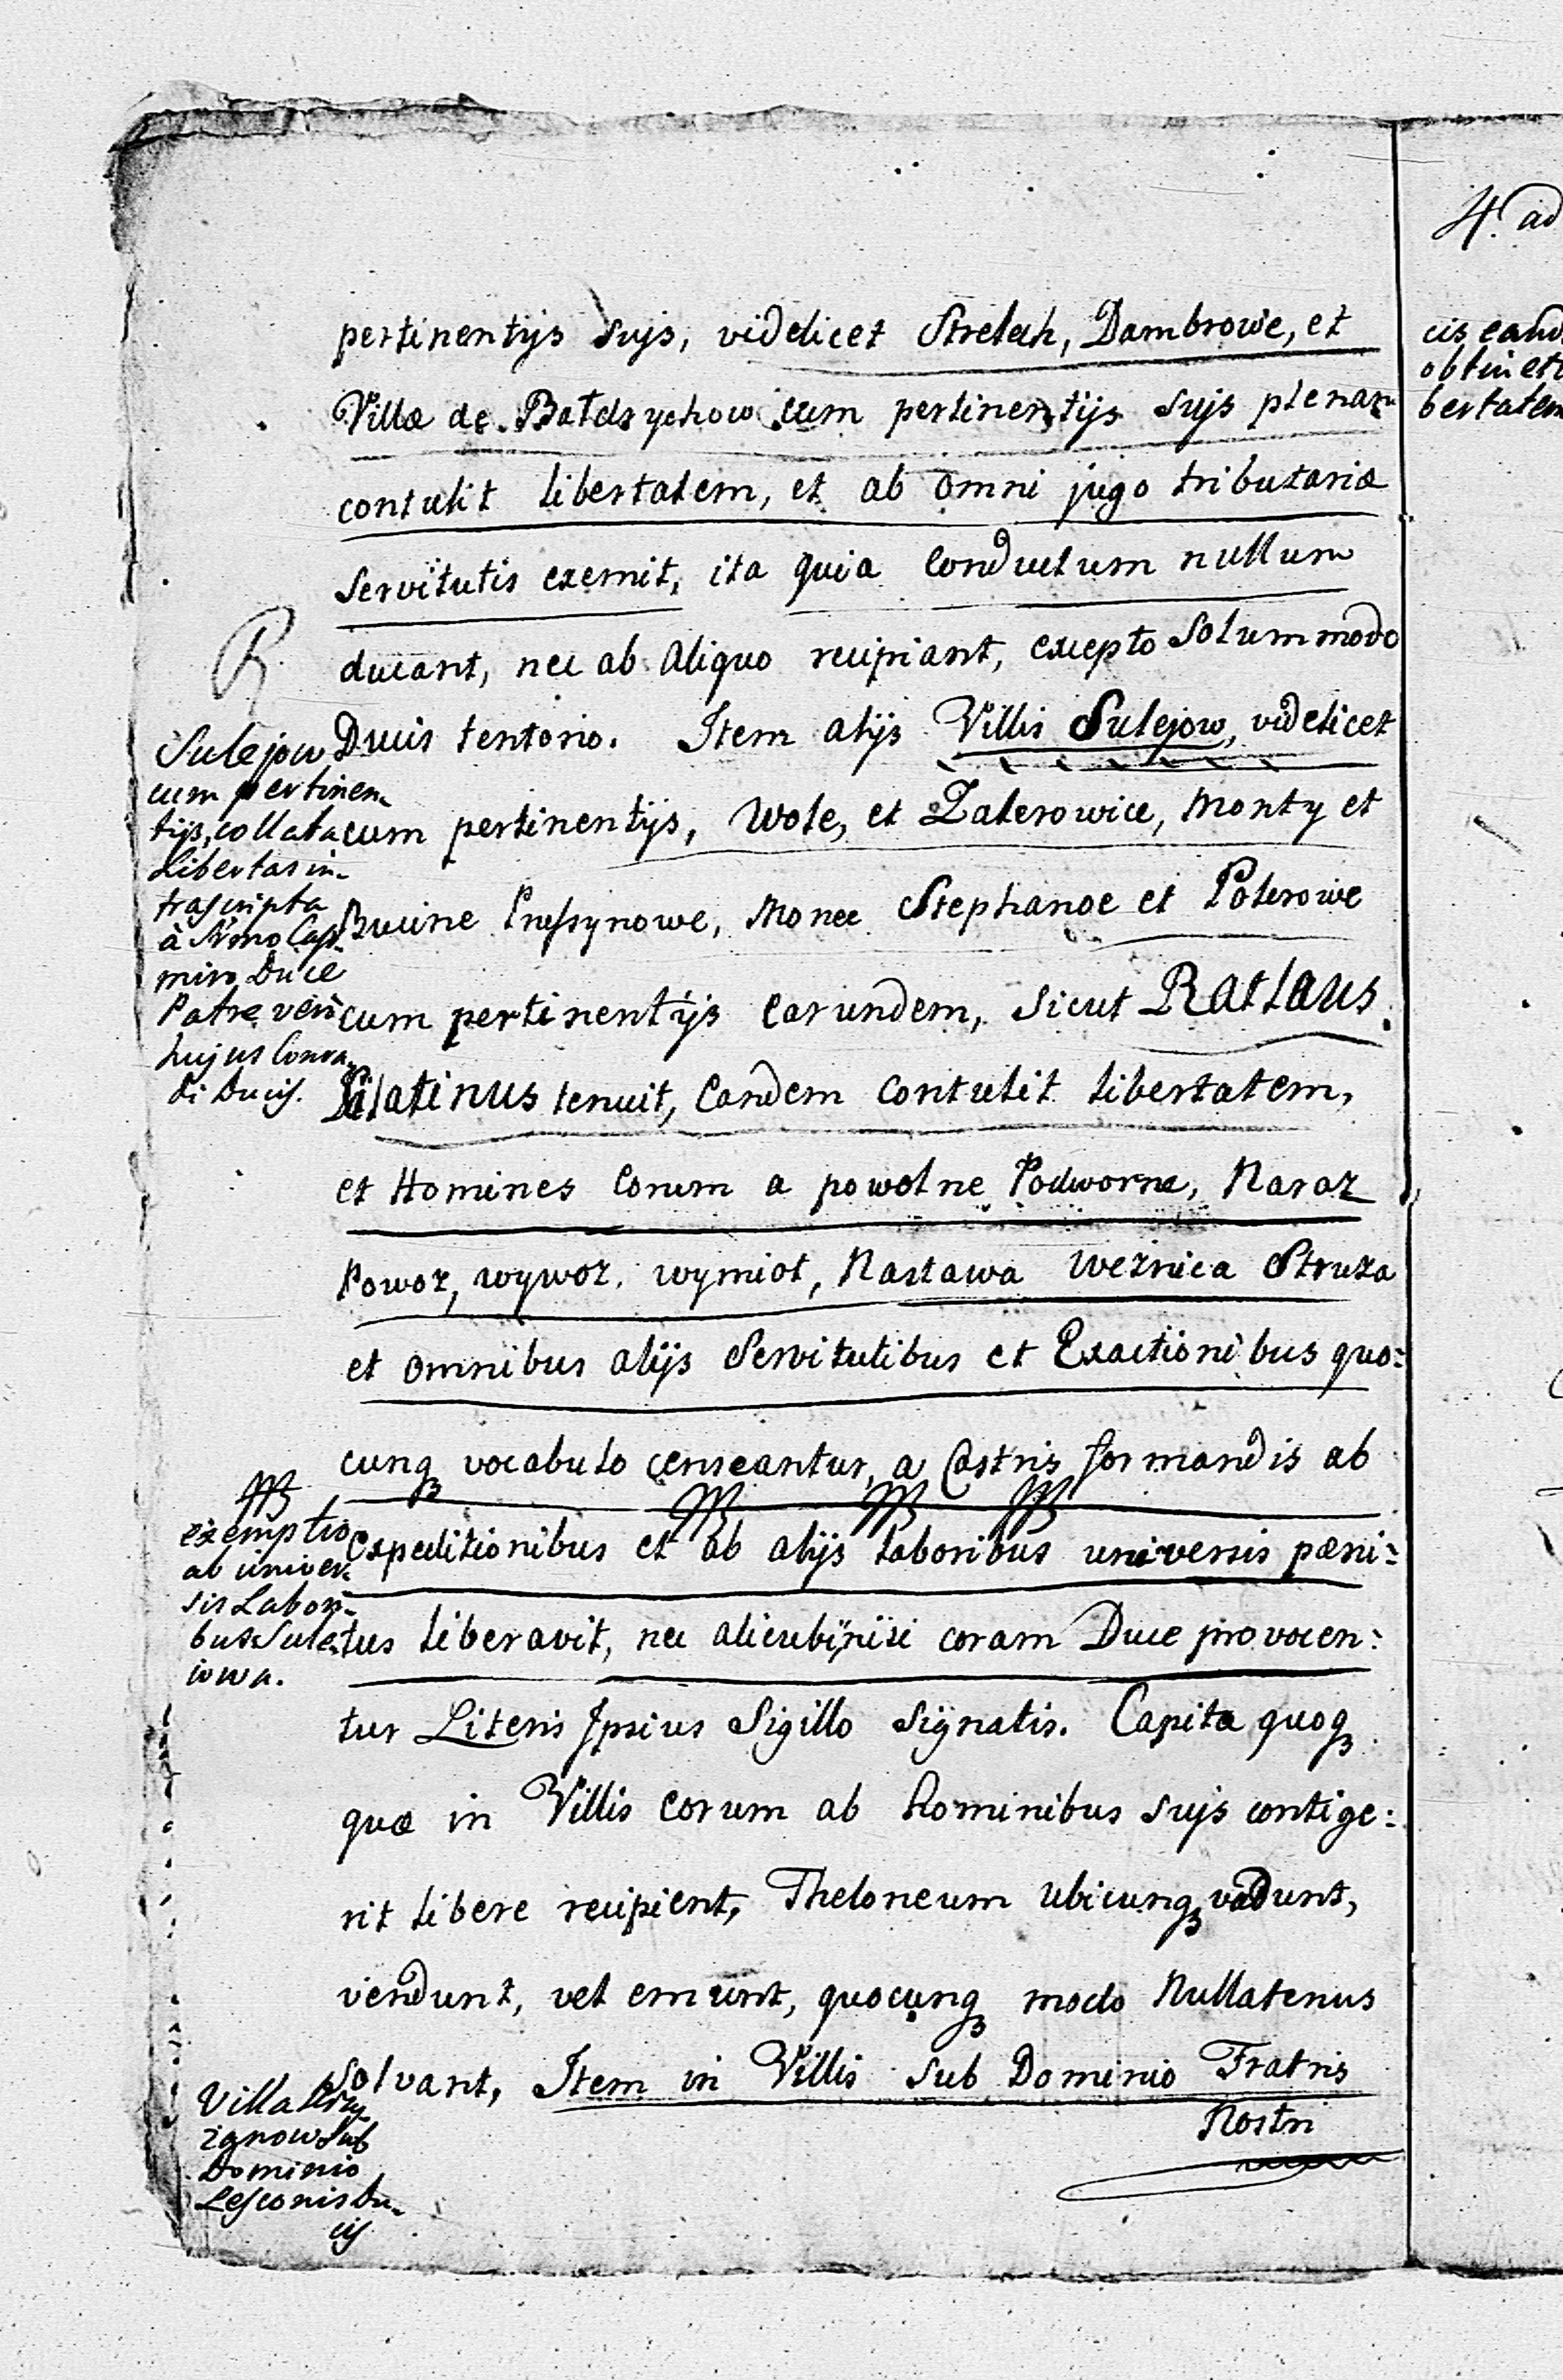 pertinentijs sujs, videlicet Streleh, Dambrowie, et
Villæ de Baldrychow cum pertinentijs sujs plenam
contulit libertatem, et ab omni jugo tributariæ
servitutis exemit, ita quia Conductum nullum
ducant, nec ab aliquo recipiant, excepto solummodo
Ducis tentorio. Item alijs Villis Sulejow, videlicet
cum pertinentijs, Wole, et Zalerowice, Monty et
Bucine Presynowe, Monee Stephanoe et Polerowe
cum pertinentijs Earundem, sicut Ratlaus
Palatinus tenuit, Eandem contulit libertatem,
et Homines Eorum a powolne Podworne, Naraz
Powoz, wywoz, wymiot, Nastawa weznica Struza
et omnibus alijs Servitutibus et Exactionibus quo:
cunq vocabulo censeantur, a Castris formandis ab
Expeditionibus et ab alijs laboribus universis pæni:
tus liberavit, nec alicubi nisi coram Duce provocen:
tur Literis Ipsius Sigillo signatis. Capita quoq
quæ in Villis eorum ab hominibus sujs contige:
rit libere recipient, Theloneum ubicunq vadunt,
vendunt, vel emunt, quocunq modo Nullatenus
solvant, Item in Villis sub Dominio Fratris
Nostri
Sulejow
cum pertinen
tijs, collata
Libertas in-
trascripta
à Nmo Casi
miro Duce
Patre verò
hujus Conra
di Ducis.
exemptio
ab univer
sis Labori-
bus Sule
iowa.
Villa
zgnow sub
Dominio
Lesconis Du
cis
4. ad
cis eand
obtinet
bertatem